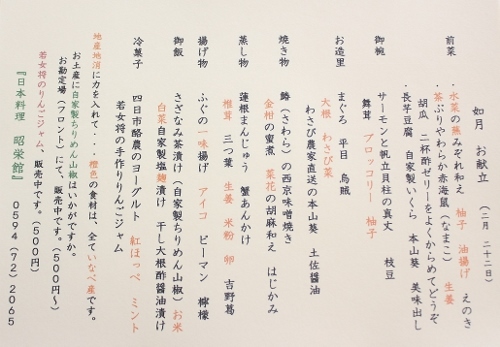 如月 お献立 (二月 二十二日)
前菜
・水菜の蕪みぞれ和え 柚子 油揚げ えのき
・茶ぶりやわらか赤海鼠(なまこ) 生姜
胡瓜 二杯酢ゼリーをよくからめてどうぞ
・長芋豆腐 自家製いくら 本山葵 美味出し
御椀
サーモンと帆立貝柱の真丈 枝豆
舞茸 ブロッコリー 柚子
お造里
まぐろ 平目 烏賊
大根 わさび菜
わさび農家直送の本山葵 土佐醤油
焼き物
鰆(さわら)の西京味噌焼き
金柑の蜜煮 菜花の胡麻和え はじかみ
蒸し物
蓮根まんじゅう 蟹あんかけ
椎茸 三つ葉 生姜 米粉 卵 吉野葛
揚げ物
ふぐの一味揚げ アイコ ピーマン 檸檬
御飯
さざなみ茶漬け(自家製ちりめん山椒) お米
白菜自家製塩麹漬け 干し大根酢醤油漬け
冷菓子
四日市酪農のヨーグルト 紅ほっぺ ミント
若女将の手作りりんごジャム
地産地消に力を入れて・・・橙色の食材は、全ていなべ産です。
お土産に自家製ちりめん山椒はいかがですか。
お勘定場(フロント)にて、販売中です。(500円~)
若女将のりんごジャム、販売中です。(500円)
『日本料理 昭栄館』 0594(72)2065